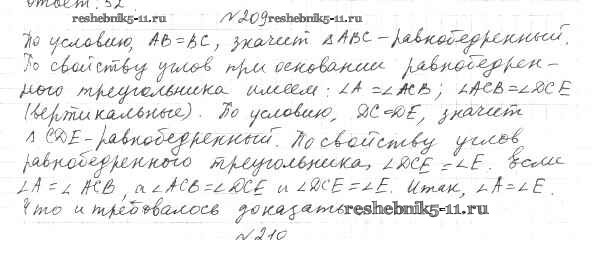 ответ: 52.
reshebnik5-11.ru №209 reshebnik5-11.ru
По условию, AB=BC, значит △ABC – равнобедренный.
По свойству углов при основании равнобедрен-
ного треугольника имеем: ∠A=∠ACB; ∠ACB=∠DCE
(вертикальные). По условию, DC=DE, значит
△CDE – равнобедренный. По свойству углов
равнобедренного треугольника, ∠DCE=∠E. Если
∠A=∠ACB, а ∠ACB=∠DCE и ∠DCE=∠E. Итак, ∠A=∠E.
Что и требовалось доказать reshebnik5-11.ru
№210